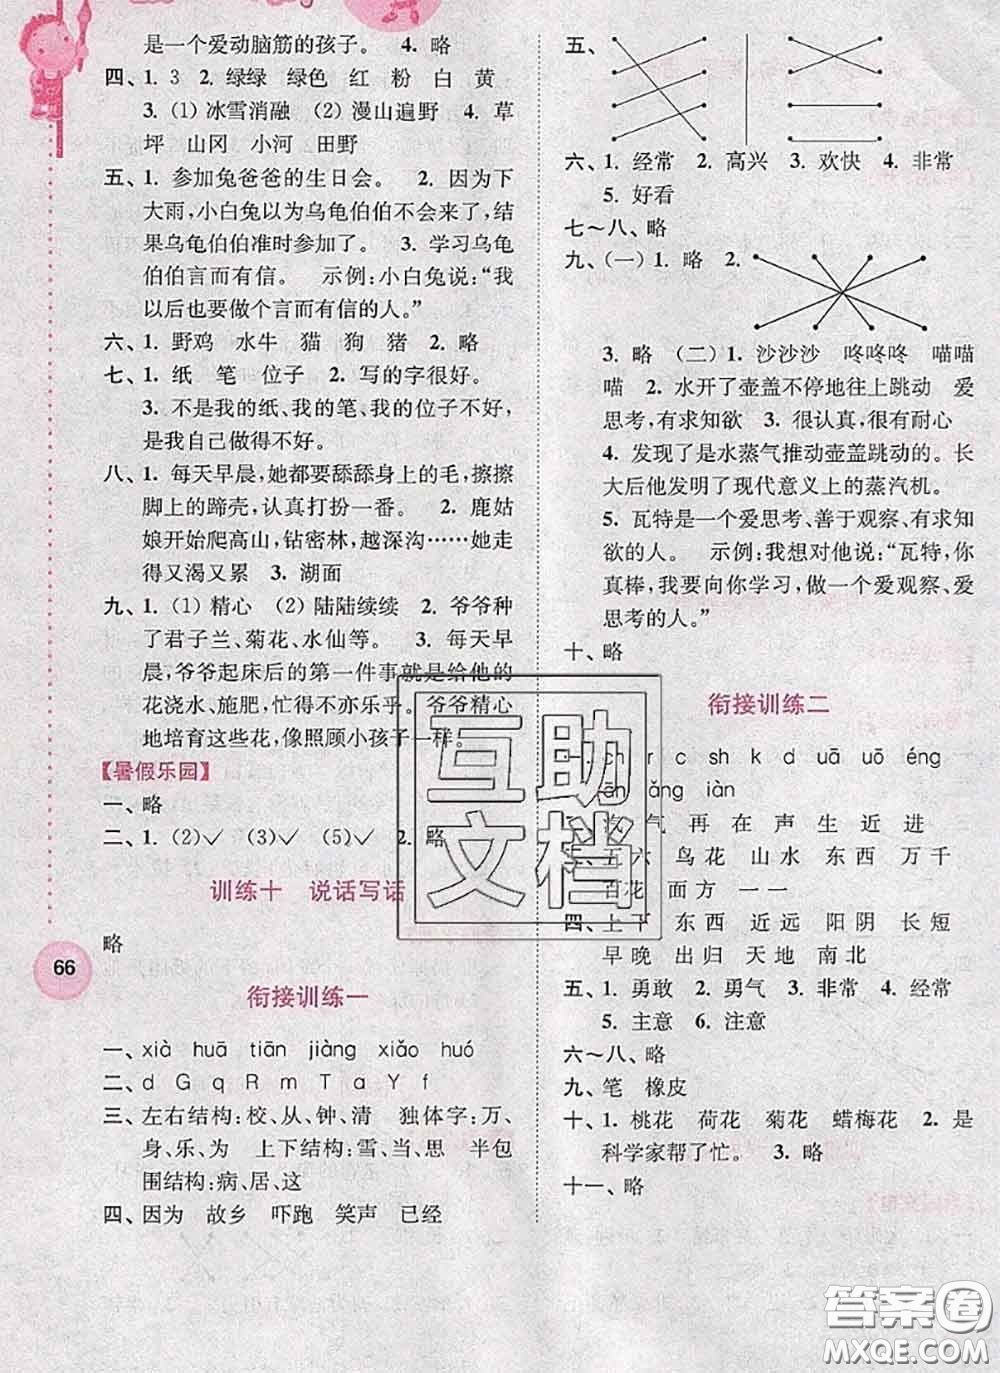 是一个爱动脑筋的孩子。 4. 略
四、1. 3 2. 绿绿 绿色 红 粉 白 黄
3. (1) 冰雪消融 (2) 漫山遍野 4. 草
坪 山冈 小河 田野
五、1. 参加兔爸爸的生日会。 2. 因为下
大雨,小白兔以为乌龟伯伯不会来了,结
果乌龟伯伯准时参加了。 3. 学习乌龟
伯伯言而有信。 示例:小白兔说:“我
以后也要做个言而有信的人。”
六、1. 野鸡 水牛 猫 狗 猪 2. 略
七、1. 纸 笔 位子 2. 写的字很好。
3. 不是我的纸、我的笔、我的位子不好,
是我自己做得不好。
八、1. 每天早晨,她都要舔舔身上的毛,擦擦
脚上的蹄壳,认真打扮一番。 2. 鹿姑
娘开始爬高山,钻密林,越深沟……她走
得又渴又累 3. 湖面
九、1. (1) 精心 (2) 陆陆续续 2. 爷爷种
了君子兰、菊花、水仙等。 3. 每天早
晨,爷爷起床后的第一件事就是给他的
花浇水、施肥,忙得不亦乐乎。爷爷精心
地培育这些花,像照顾小孩子一样。
【暑假乐园】
一、略
二、1. (2)✓ (3)✓ (5)✓ 2. 略
训练十 说话写话
略
66
衔接训练一
一、xià huā tiān jiàng xiǎo huó
二、d G q R m T a Y f
三、左右结构:校、从、钟、清 独体字:万、
身、乐、为 上下结构:雪、当、思 半包
围结构:病、居、这
四、因为 故乡 吓跑 笑声 已经
五、
六、1. 经常 2. 高兴 3. 欢快 4. 非常
5. 好看
七~八、略
九、(一) 1. 略 2.
3. 略 (二) 1. 沙沙沙 咚咚咚 喵喵
喵 2. 水开了壶盖不停地往上跳动 爱
思考,有求知欲 3. 很认真,很有耐心
4. 发现了是水蒸气推动壶盖跳动的。长
大后他发明了现代意义上的蒸汽机。
5. 瓦特是一个爱思考、善于观察、有求知
欲的人。 示例:我想对他说:“瓦特,你
真棒,我要向你学习,做一个爱观察、爱
思考的人。”
十、略
衔接训练二
r c sh k d uā uō éng
ǎng iàn
气 再 在 声 生 近 进
五 六 鸟 花 山 水 东 西 万 千
百 花 面 方 一 一
四、上 下 东 西 近 远 阳 阴 长 短
早 晚 出 归 天 地 南 北
五、1. 勇敢 2. 勇气 3. 非常 4. 经常
5. 主意 6. 注意
六~八、略
九、笔 橡皮
十、1. 桃花 荷花 菊花 蜡梅花 2. 是
科学家帮了忙。 3. 略
十一、略
互助
文档
答案圈
MXQE.COM